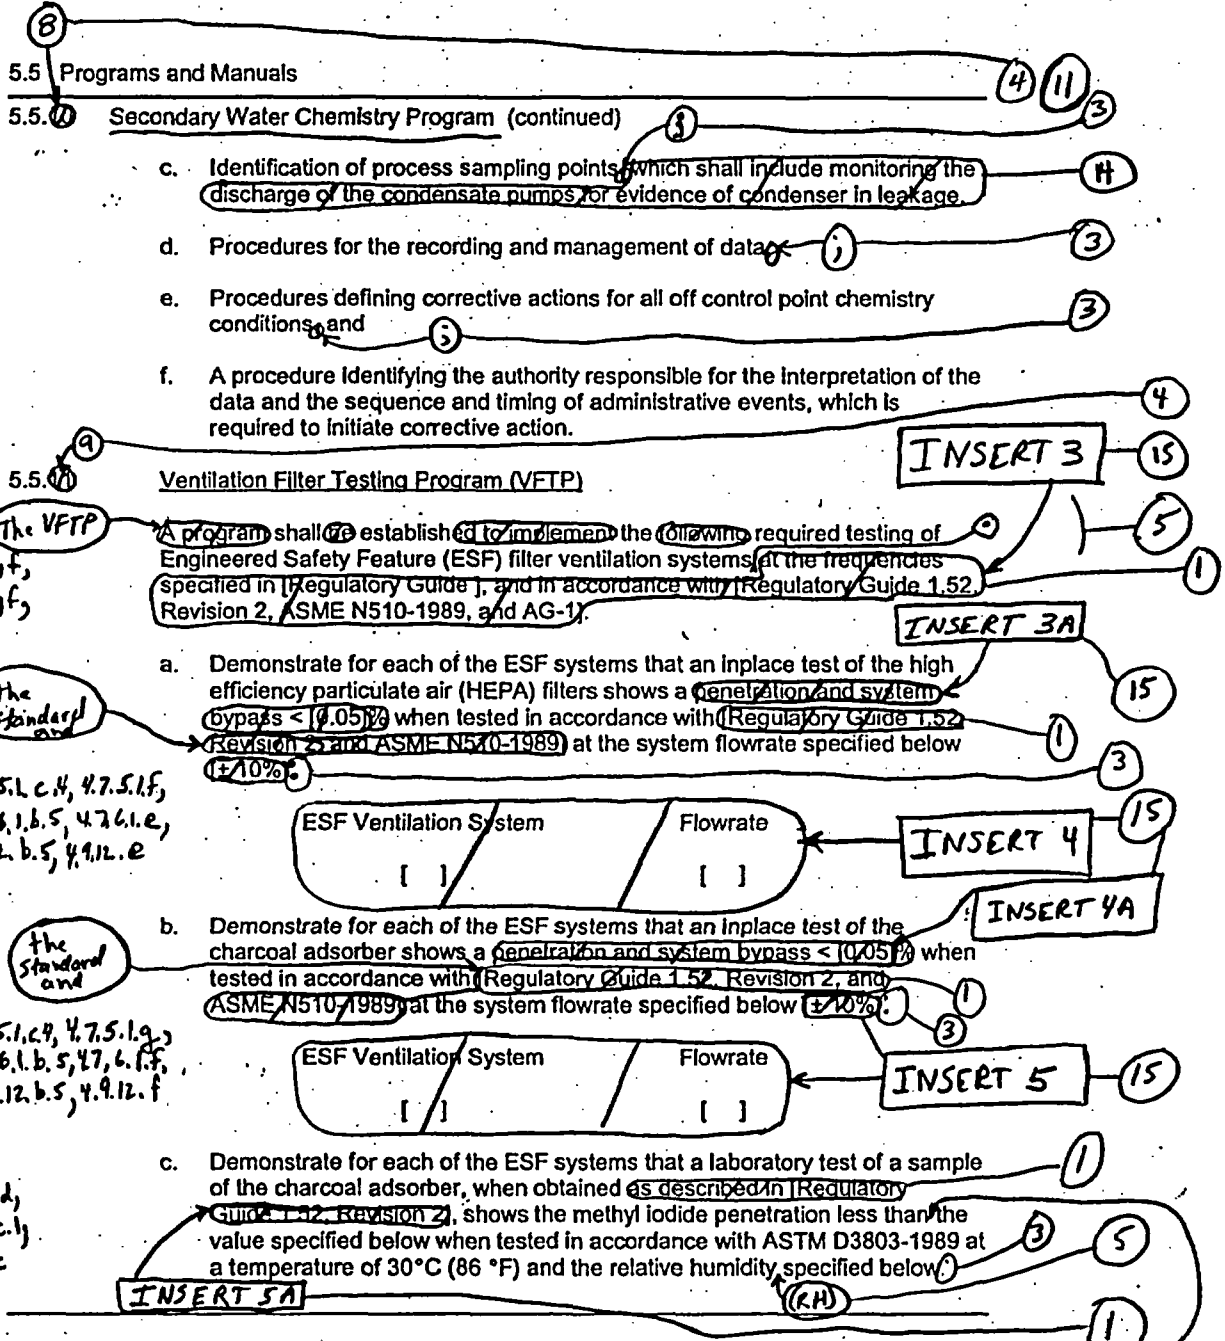 8
5.5 Programs and Manuals
4 11
5.5. Secondary Water Chemistry Program (continued)
; 3
c. Identification of process sampling points, which shall include monitoring the
discharge of the condensate pumps for evidence of condenser in leakage.
14
d. Procedures for the recording and management of data, ; 3
e. Procedures defining corrective actions for all off control point chemistry
conditions, and ; 3
f. A procedure identifying the authority responsible for the interpretation of the
data and the sequence and timing of administrative events, which is
required to initiate corrective action.
4
9
INSERT 3 15
5.5. Ventilation Filter Testing Program (VFTP)
The VFTP
A program shall be established to implement the following required testing of
Engineered Safety Feature (ESF) filter ventilation systems at the frequencies
specified in [Regulatory Guide ], and in accordance with [Regulatory Guide 1.52,
Revision 2, ASME N510-1989, and AG-1].
. 5
1
f,
f,
INSERT 3A
15
a. Demonstrate for each of the ESF systems that an inplace test of the high
efficiency particulate air (HEPA) filters shows a penetration and system
bypass < [0.05]% when tested in accordance with [Regulatory Guide 1.52,
Revision 2, and ASME N510-1989] at the system flowrate specified below
[± 10%]:
the
standard
and
1
3
5.1.c.4, 4.7.5.1.f,
6.1.b.5, 4.7.6.1.e,
2.b.5, 4.9.12.e
ESF Ventilation System Flowrate
[ ] [ ]
INSERT 4 15
INSERT 4A
b. Demonstrate for each of the ESF systems that an inplace test of the
charcoal adsorber shows a penetration and system bypass < [0.05]% when
tested in accordance with [Regulatory Guide 1.52, Revision 2, and
ASME N510-1989] at the system flowrate specified below [± 10%]:
the
standard
and
1
3
5.1.c.4, 4.7.5.1.g,
6.1.b.5, 4.7.6.1.f,
.12.b.5, 4.9.12.f
ESF Ventilation System Flowrate
[ ] [ ]
INSERT 5 15
c. Demonstrate for each of the ESF systems that a laboratory test of a sample
of the charcoal adsorber, when obtained as described in [Regulatory
Guide 1.52, Revision 2], shows the methyl iodide penetration less than the
value specified below when tested in accordance with ASTM D3803-1989 at
a temperature of 30°C (86 °F) and the relative humidity specified below:
1
d,
c.1,
c
3 5
INSERT 5A
(RH)
1